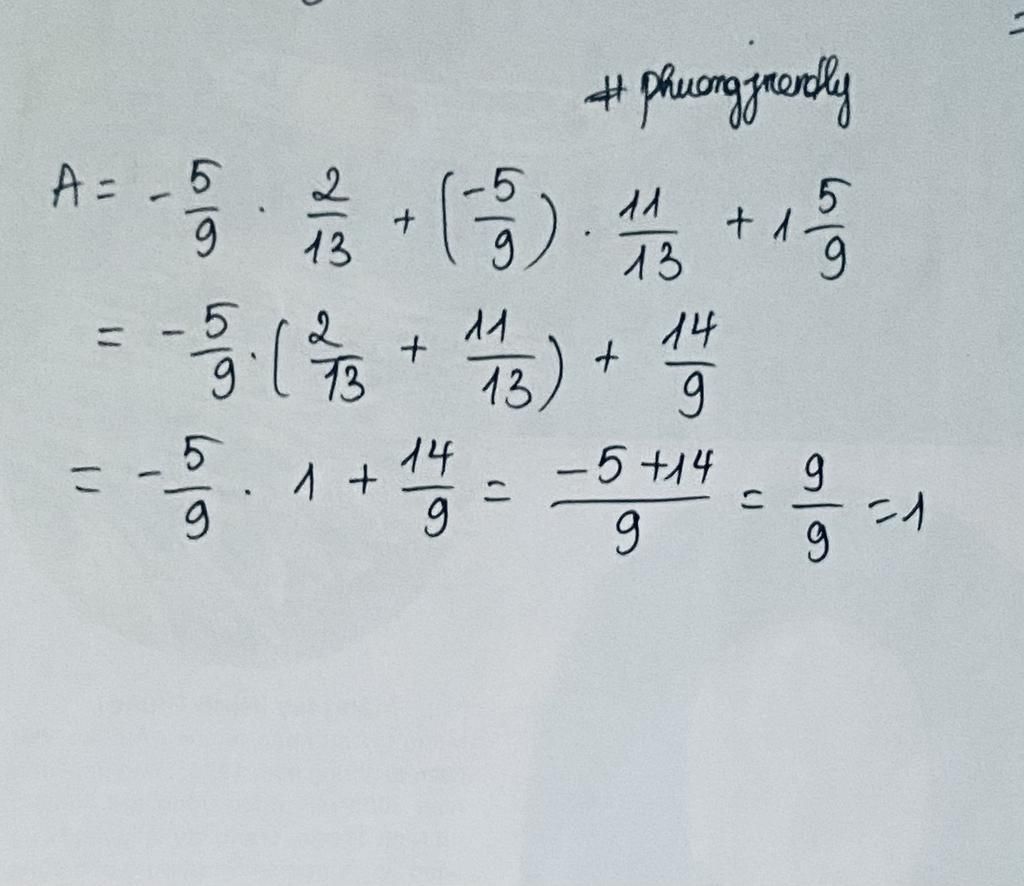 # phuongfriendly
A = - 5/9 . 2/13 + (-5/9) . 11/13 + 1 5/9
= - 5/9 . (2/13 + 11/13) + 14/9
= - 5/9 . 1 + 14/9 = -5+14/9 = 9/9 = 1